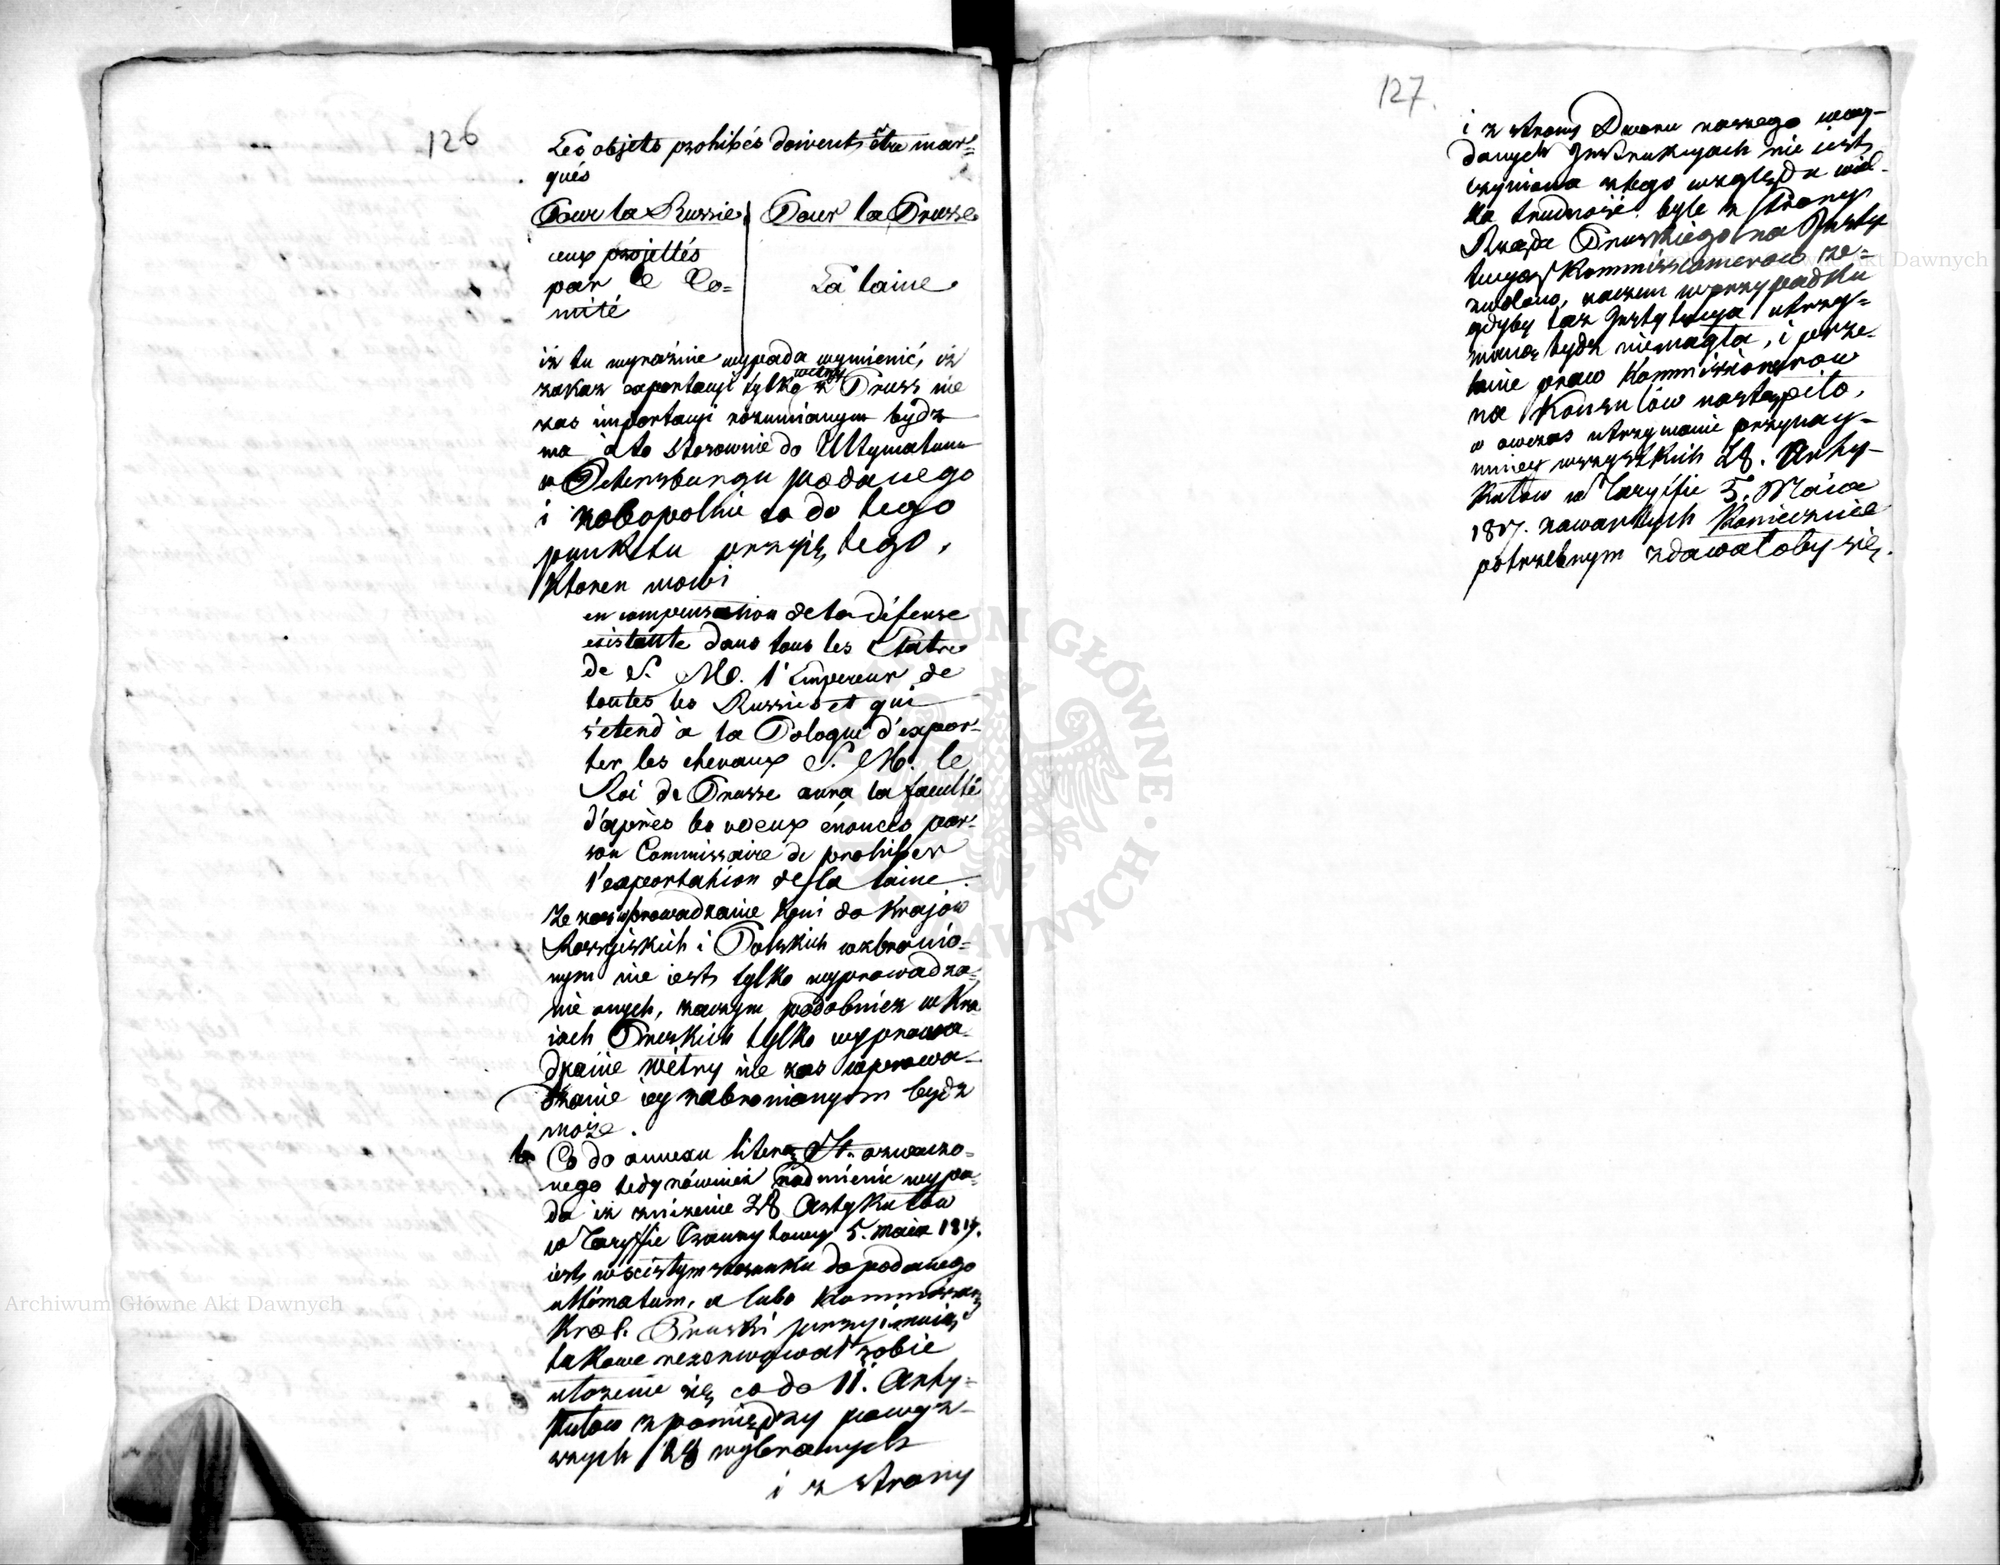 126
Les objets prohibés doivent être mar=
qués
Pour la Russie
ceux projettés
par le Co=
mité
Pour la Prusse
La laine
iż tu wyraźnie wypada wymienić, iż
zakaz exportacyi tylko wełny z Pruss nie
zas importacyi rozumianym bydz
ma a to stosownie do Ultymatum
w Petersburgu podanego
i zobopolnie co do tego
punktu przyiętego,
Ktoren mowi
en compensation de la défense
existante dans tous les Etats
de S. M. l'Empereur de
toutes les Russies et qui
s'etend à la Pologne d'expor-
ter les chevaux S. M. le
Roi de Prusse aura la faculté
d'après les voeux énoncés par
son Commissaire de prohiber
l'exportation de la laine.
Ze zas wprowadzanie koni do Krajow
Rossyiskich i Polskich wzbronio=
nym nie iest tylko wyprowadza=
nie onych, zaczym podobnież w Kra
iach Pruskich tylko wyprowa-
dzanie wełny nie zas wprowa-
dzanie iey zabronionym bydz
może.
b Co do annexu litera H. oznaczo-
nego tedy rownież nadmienić wypa-
da iż zniżenie 28 Artykułow
w Taryffie 5. Maia 1817.
iest w scisłym stosunku do podanego
ultimatum, a lubo Kommissarz
Krol. Pruski przyimuiąc
takowe rezerwował sobie
ułożenie się co do 11. Arty-
kułow z pomiędzy powyż-
szych 28 wybranych
i z strony
127.
i z strony Dworu naszego wwy-
danych Instrukcyach nie iest
czyniona z tego względu wiel-
ka trudność byle z strony
Rządu Pruskiego na Insty
tucyą Kommissionerow ze-
zwolono, zaczem w przypadku
gdyby taż Instytucya utrzy=
maną bydz niemogła, i prze-
lanie praw Kommissionerow
na Konsulow nastąpiło,
w owczas utrzymanie przynay-
mniey wszystkich 28. Arty-
kułow w Taryffie 5. Maia
1817. zawartych Koniecznie
potrzebnym zdawałoby się.
Archiwum Główne Akt Dawnych
Archiwum Główne Akt Dawnych
ARCHIWUM GŁÓWNE AKT DAWNYCH